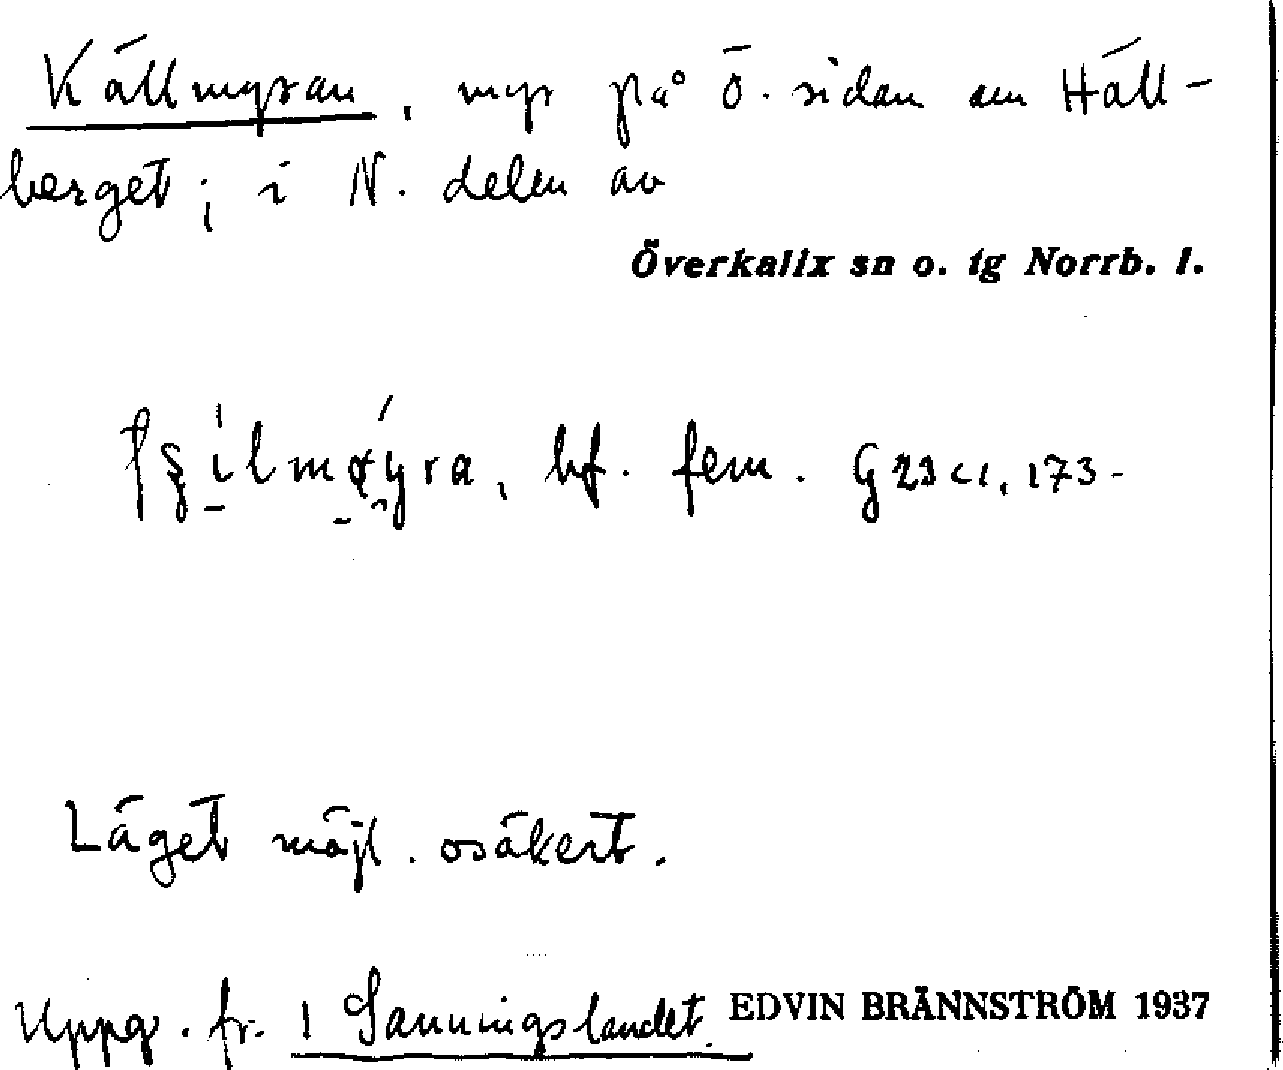 Källmyran, myr på Ö. sidan om Häll-
berget; i N. delen av
Överkalix sn o. tg Norrb. l.
bf. fem. G 23 c1, 173-
Läget möjl. osäkert.
Uppg. fr. 1 Sanningslandet. EDVIN BRÄNNSTRÖM 1937